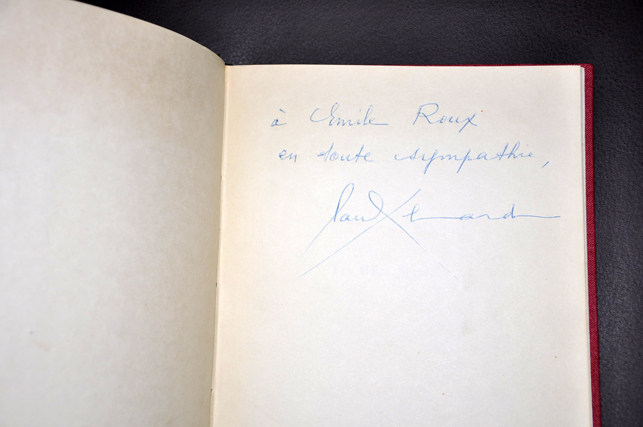 à Emile Roux
en toute sympathie,
Paul